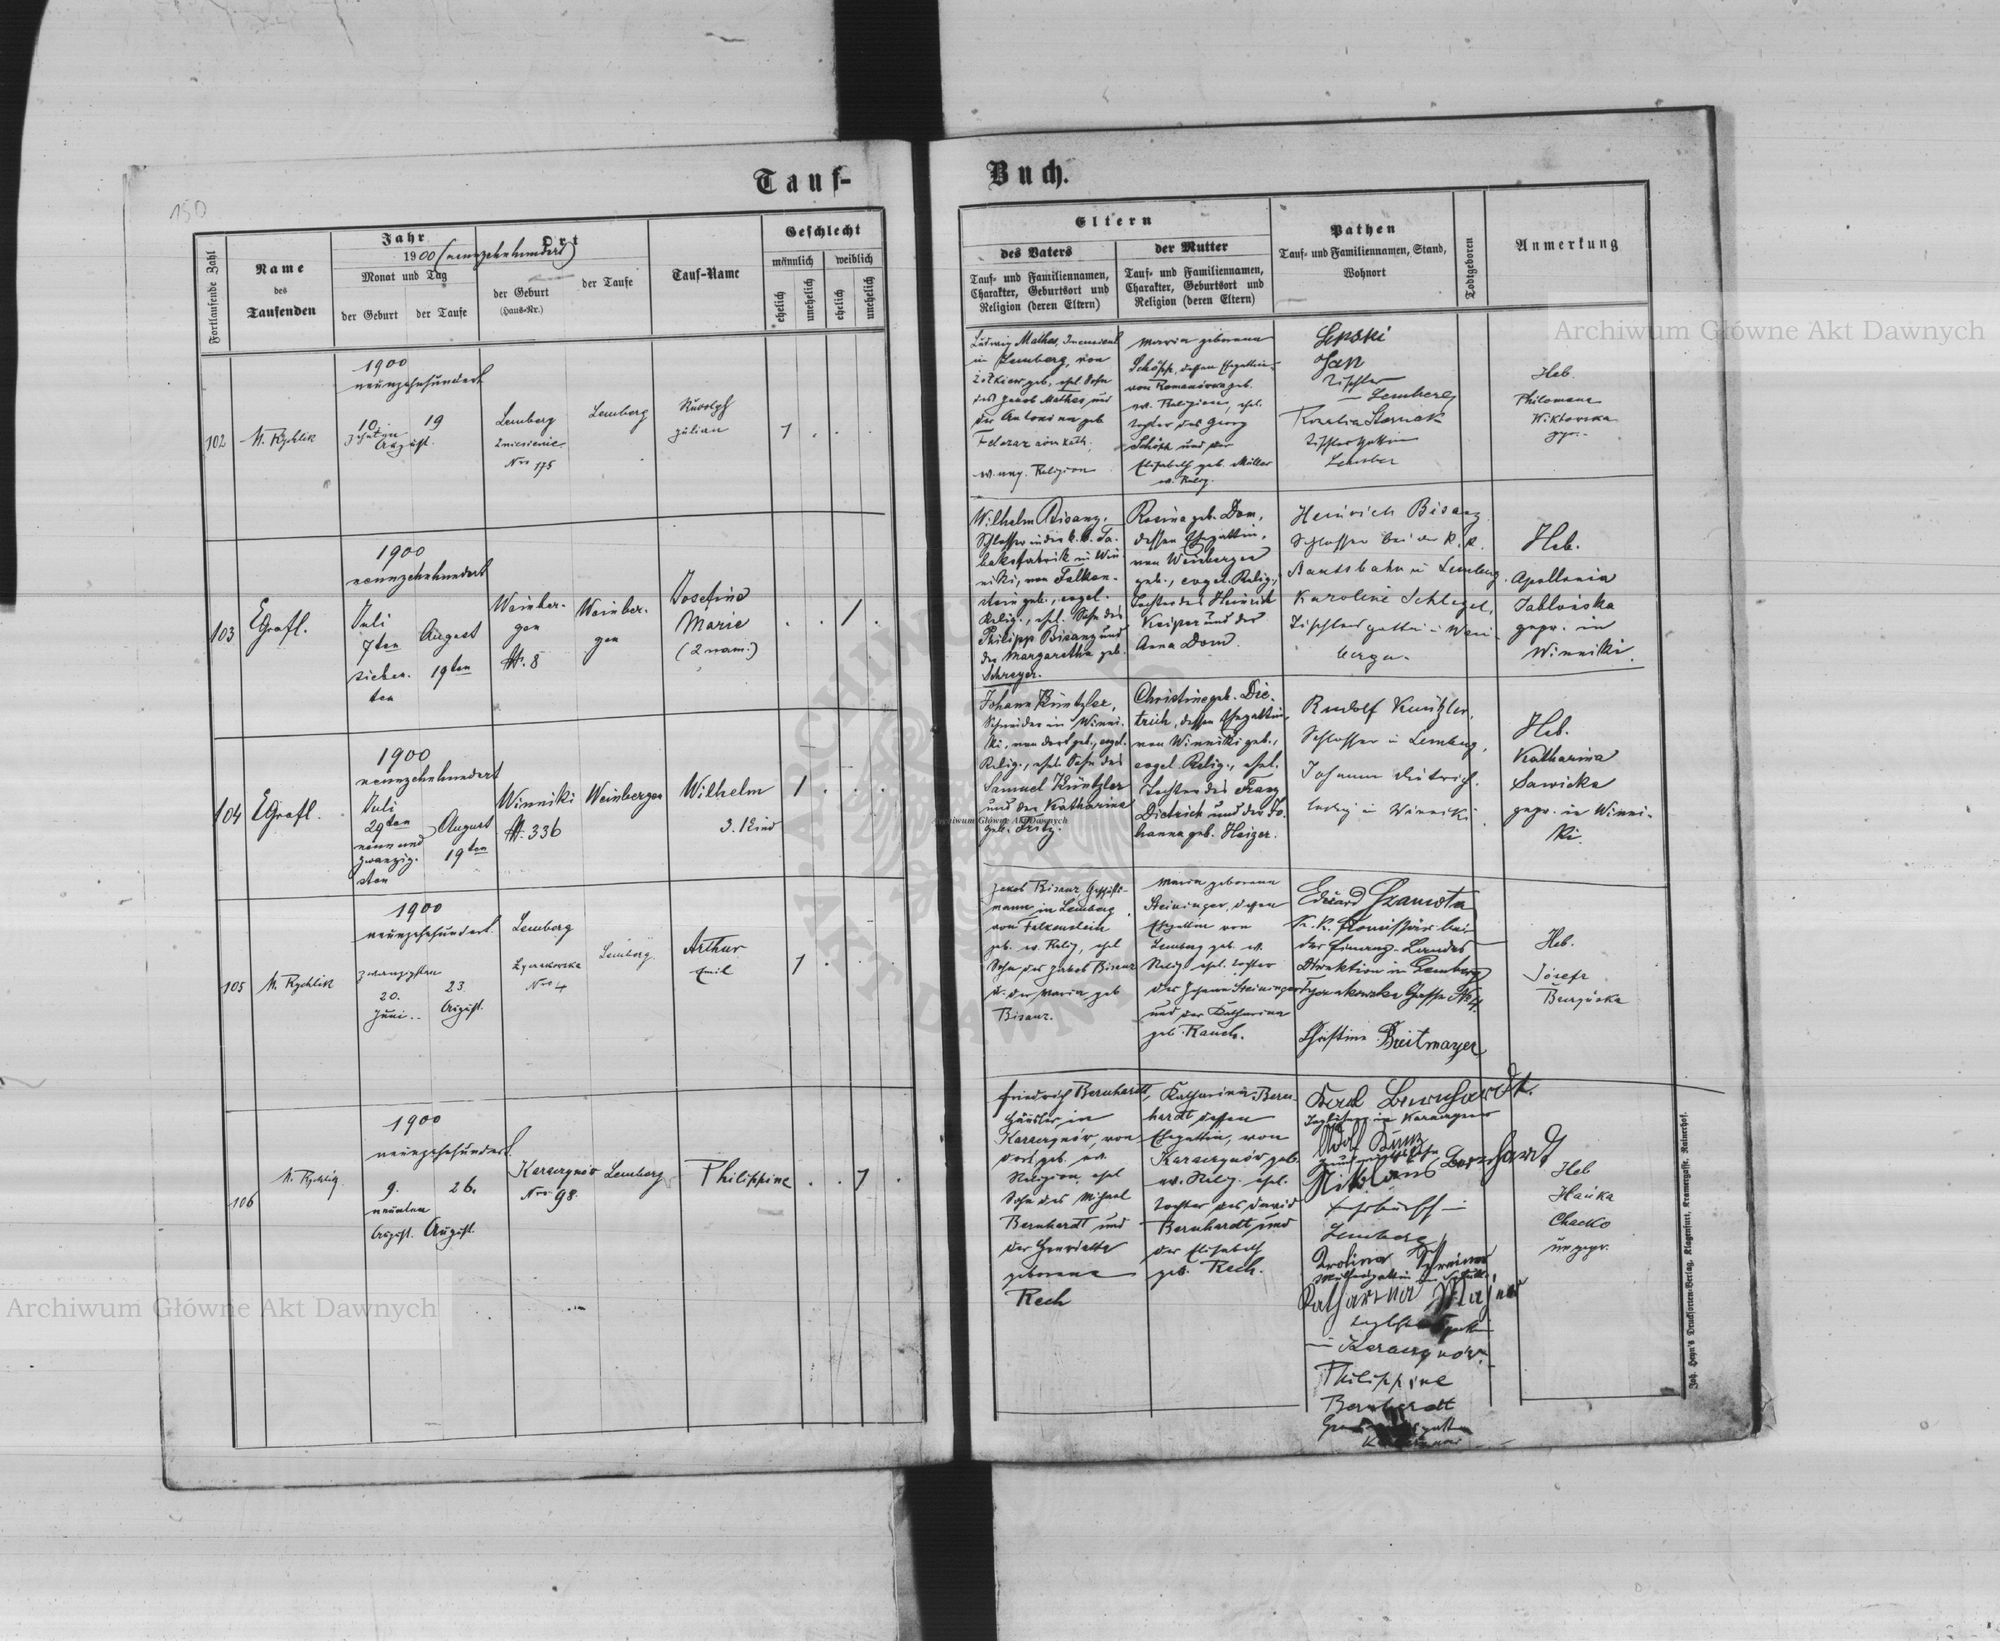 150
Tauf-
Buch.
Fortlaufende Zahl
Name
des
Taufenden
Jahr
1900 (neunzehnhundert)
Monat und Tag
der Geburt
der Taufe
Ort
der Geburt
(Haus-Nr.)
der Taufe
Tauf-Name
Geschlecht
männlich
weiblich
ehelich
unehelich
ehelich
unehelich
Eltern
des Vaters
Tauf- und Familiennamen,
Charakter, Geburtsort und
Religion (deren Eltern)
der Mutter
Tauf- und Familiennamen,
Charakter, Geburtsort und
Religion (deren Eltern)
Pathen
Tauf- und Familiennamen, Stand,
Wohnort
Todtgeboren
Anmerkung
102
M. Rychlik
1900
neunzehnhundert
10.
zehnten
August.
19
Lemberg
Zniesienie
Nro 175
Lemberg
Rudolph
Julian
1
Ludwig Mathes,
in Lemberg, von
Zołkiew geb., ehel. Sohn
des Jacob Mathes und
der Antonina geb
röm. kath.
ev. aug. Religion
Maria geborene
Schöpp, dessen Ehegattin
von Romanówka geb.
ev. Religion, ehel.
Tochter des Georg
Schöpp und der
Elisabeth geb. Müller
ev. Relig.
Lepski
Jan
Tischler
Lemberg
Rozalia
Tischlergattin
Lemberg
Heb.
Philomena
Wiktorska
gepr.
103
EGrafl.
1900
neunzehnhundert
Juli
7ten
sieben-
ten
August
19ten
Weinber-
gen
№. 8
Weinber-
gen
Josefine
Marie
(2 nam.)
1
Wilhelm Bisanz,
Schlosser in der k.k. Ta-
baksfabrik in Win-
niki, von Falken-
stein geb., evgel.
Relig., ehel. Sohn des
Philipp Bisanz und
der Margaretha geb.
Schreyer.
Rosina geb. Dom,
dessen Ehegattin,
von Weinbergen
geb., evgel. Relig.,
Tochter des Heinrich
Keiper und der
Anna Dom.
Heinrich Bisanz
Schlosser bei der k.k.
Staatsbahn in Lemberg.
Karoline Schlegel,
Tischlersgattin in Wein-
bergen.
Heb.
Apollonia
Jabłońska
gepr. in
Winniki.
104
EGrafl.
1900
neunzehnhundert
Juli
29ten
neun und
zwanzig-
sten
August
19ten
Winniki
№. 336
Weinbergen
Wilhelm
3. Kind
1
Johann Küntzler,
Schneider in Winni-
ki, von dort geb., evgel.
Relig., ehel. Sohn des
Samuel Küntzler
und der Katharina
geb. Fritz.
Christine geb. Die-
trich, dessen Ehegattin,
von Winniki geb.,
evgel. Relig., ehel.
Tochter des Franz
Dietrich und der Jo-
hanna geb. Heizer.
Rudolf Küntzler,
Schlosser in Lemberg,
Johanna Dietrich,
ledig in Winniki
Heb.
Katharina
Sawicka
gepr. in Winni-
ki.
105
M. Rychlik
1900
neunzehnhundert.
zwanzigsten
20.
Juni.
23.
August.
Lemberg
Łyczakowska
Nro 4
Lemberg
Arthur
Emil
1
Jakob Bisanz, Geschäfts-
mann in Lemberg,
von Falkenstein
geb. ev. Relig, ehel
Sohn des Jakob Bisanz
u. der Maria geb
Bisanz.
Maria geborene
Steininger, dessen
Ehegattin von
Lemberg geb. ev.
Relig ehel. Tochter
des Johann Steininger
und der Katharina
geb. Rauch.
Eduard Szamota
k. k. Komissär bei
der Finanz-Landes
Direktion in Lemberg
Łyczakowska Gasse № 4.
Christine Breitmayer
Heb.
Józefa
106
M. Rychlig
1900
neunzehnhundert.
9.
neunten
August.
26.
August.
Kaczegnór
Nro. 98.
Lemberg
Philippine
1
Friedrich Bernhardt,
Häusler in
von
dort geb. ev.
Religion, ehel
Sohn des Michael
Bernhardt und
der Henriette
geborene
Rech
Katharina Bern-
hardt dessen
Ehegattin, von
geb.
ev. Relig. ehel.
Tochter des David
Bernhardt und
der Elisabeth
geb. Rech.
Karl Bernhardt.
Adolf Kunz
Nikolaus Bernhardt
Lemberg
Katharina
Philippine
Bernhardt
Heb
Hańka
Chaćko
ungepr.
Joh. Heyn's Drucksorten-Verlag, Klagenfurt, Kramergasse, Rainerhof.
Archiwum Główne Akt Dawnych
Archiwum Główne Akt Dawnych
Archiwum Główne Akt Dawnych